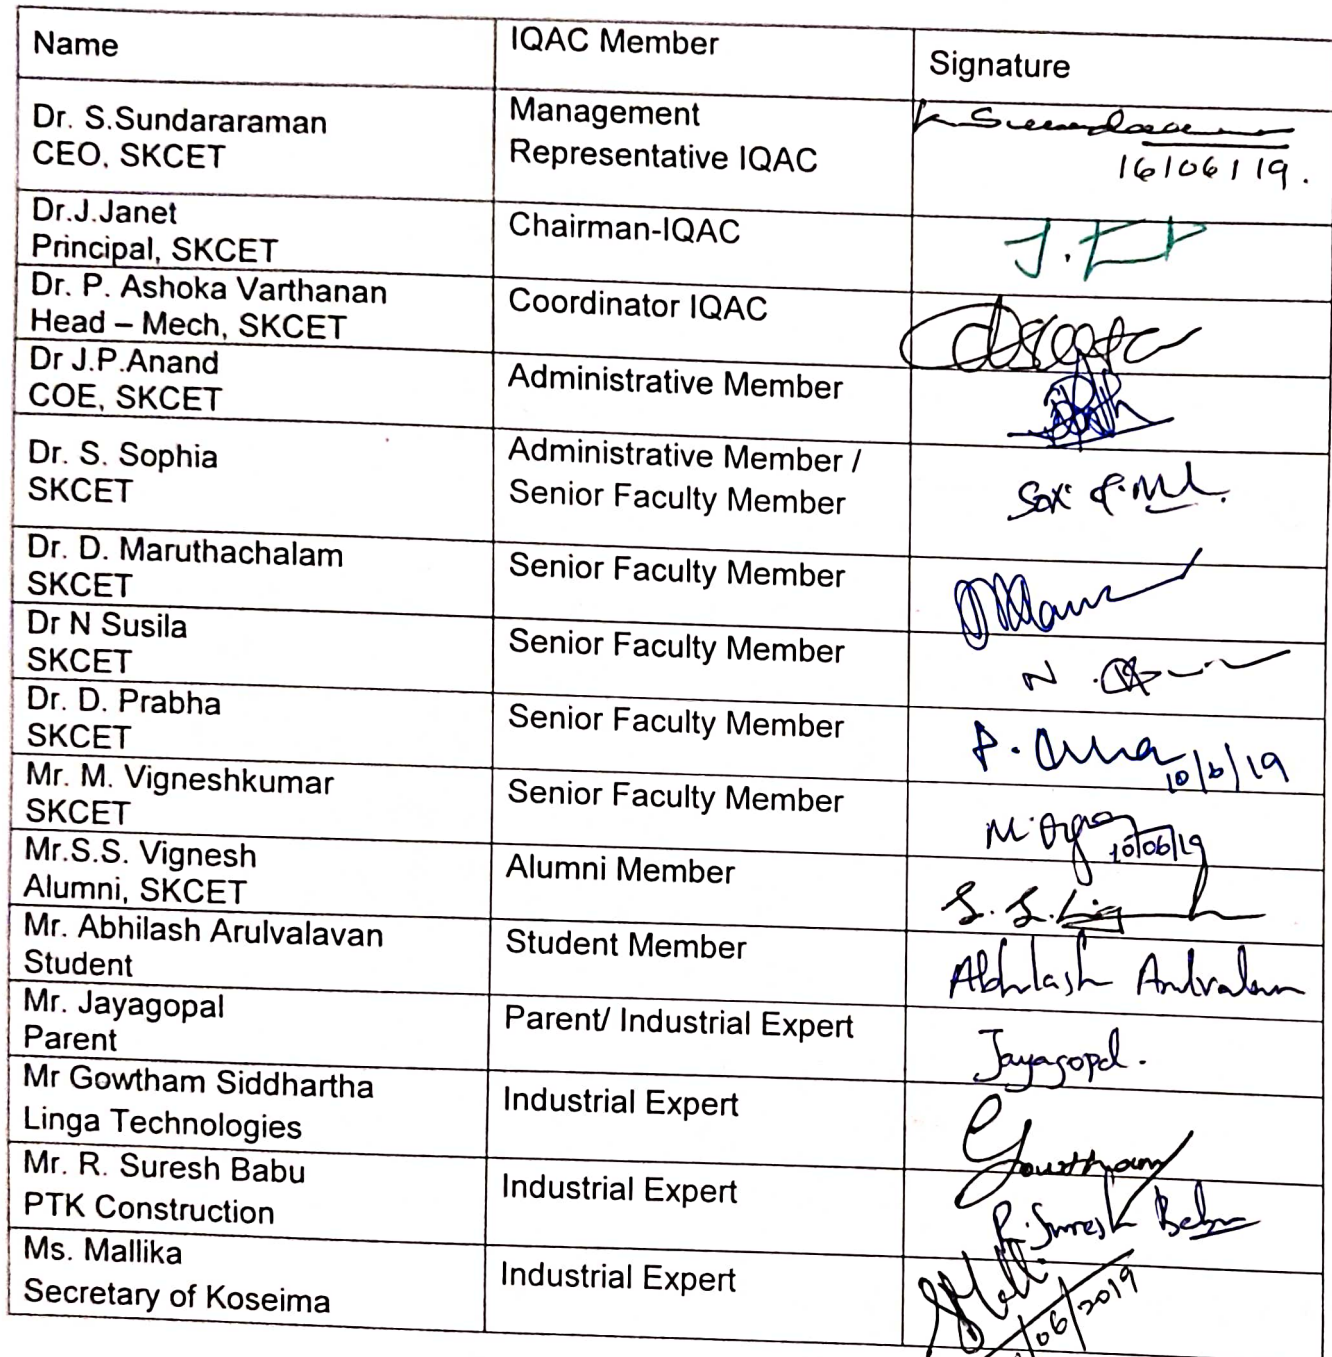 Name
IQAC Member
Signature
Dr. S.Sundararaman
CEO, SKCET
Management
Representative IQAC
16/06/19.
Dr.J.Janet
Principal, SKCET
Chairman-IQAC
Dr. P. Ashoka Varthanan
Head – Mech, SKCET
Coordinator IQAC
Dr J.P.Anand
COE, SKCET
Administrative Member
Dr. S. Sophia
SKCET
Administrative Member /
Senior Faculty Member
Dr. D. Maruthachalam
SKCET
Senior Faculty Member
Dr N Susila
SKCET
Senior Faculty Member
N
Dr. D. Prabha
SKCET
Senior Faculty Member
10/6/19
Mr. M. Vigneshkumar
SKCET
Senior Faculty Member
10/06/19
Mr.S.S. Vignesh
Alumni, SKCET
Alumni Member
Mr. Abhilash Arulvalavan
Student
Student Member
Abhilash Arulvalavan
Mr. Jayagopal
Parent
Parent/ Industrial Expert
Jayagopal.
Mr Gowtham Siddhartha
Linga Technologies
Industrial Expert
Gowtham
Mr. R. Suresh Babu
PTK Construction
Industrial Expert
R. Suresh Babu
Ms. Mallika
Secretary of Koseima
Industrial Expert
/06/2019